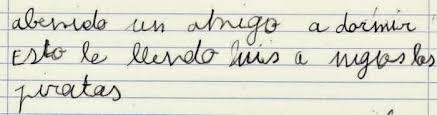 abenido un amigo a dormir
Esto le llendo luis a migos las
piratas